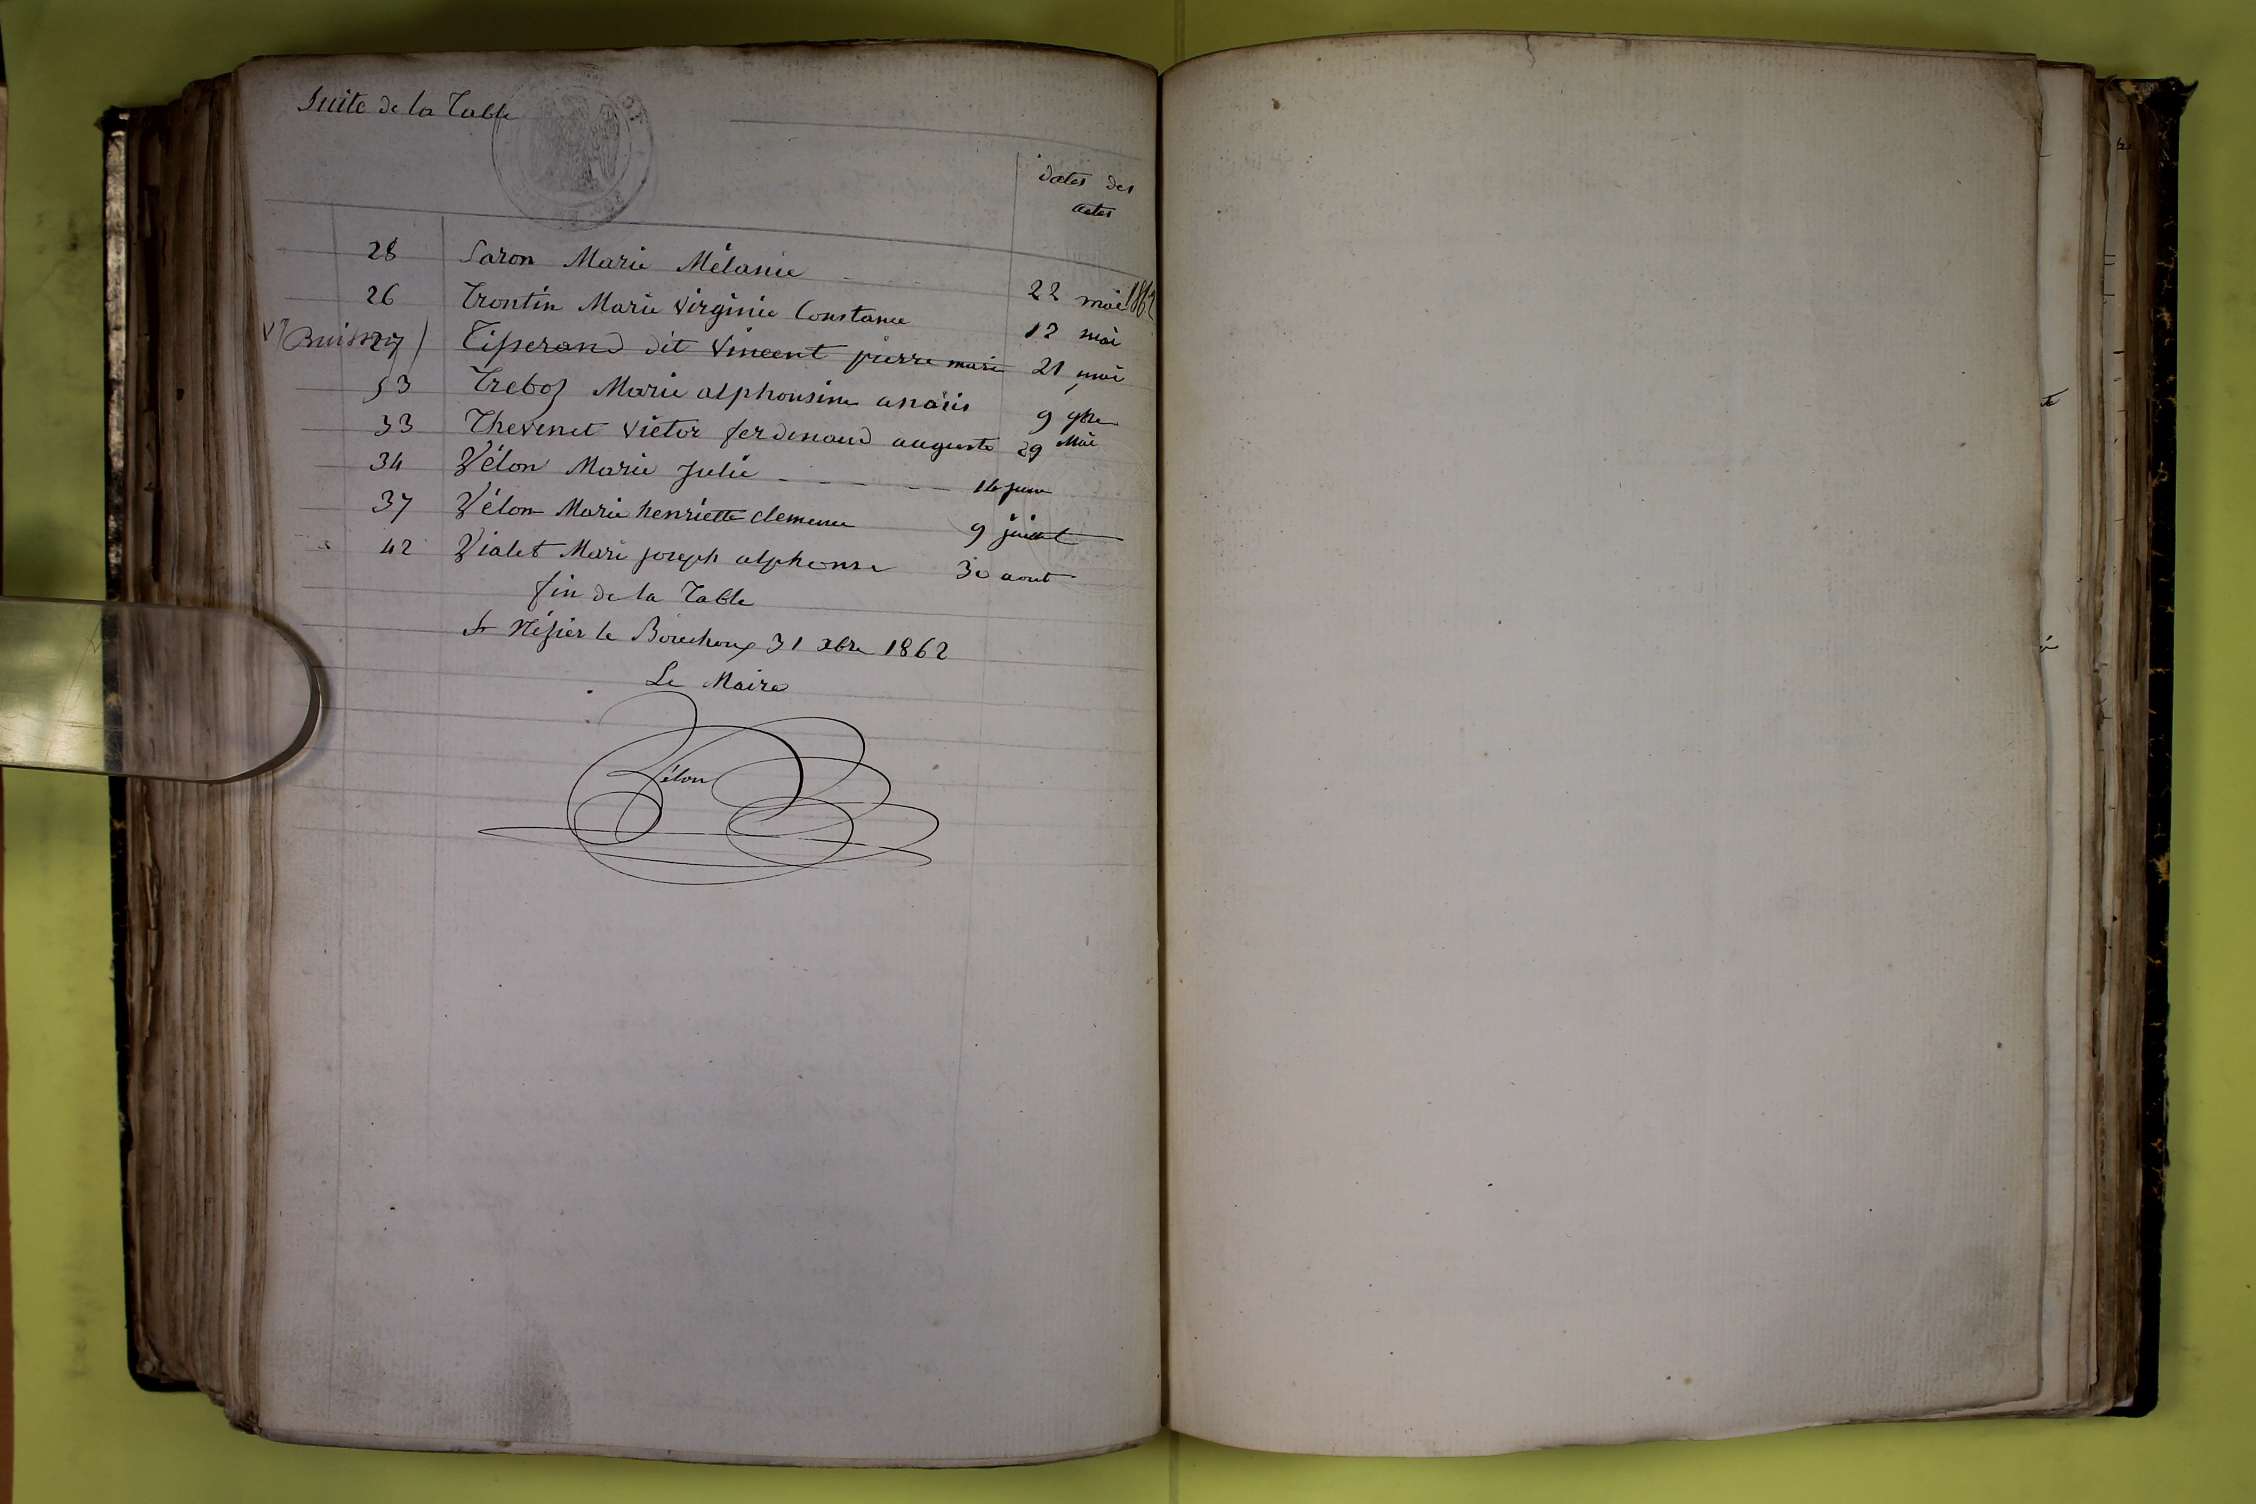 Suite de la Table
dates des
actes
28 Saron Marie Mélanie 22 mai 1862
26 Trontin Marie Virginie Constance 12 mai
Vr Buisson 27 Tisserand dit Vincent pierre marie 21 mai
53 Treboz Marie alphonsine anaïs 9 9bre
33 Thevenet Victor ferdinand auguste 29 Mai
34 Vélon Marie Julie 14 juin
37 Vélon Marie henriette clemence 9 juillet
42 Vialet Marie joseph alphonse 30 aout
fin de la Table
St Nésier le Bouchoux 31 xbre 1862
Le Maire
Vélon